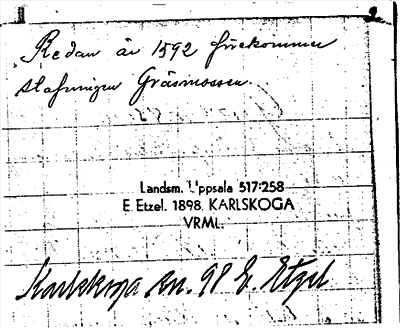 2
Redan år 1592 förekommer
stafningen Gräsmossen.
Landsm. Uppsala 517:258
E. Etzel. 1898. KARLSKOGA
VRML.
Karlskoga sn. 98 E. Etzel